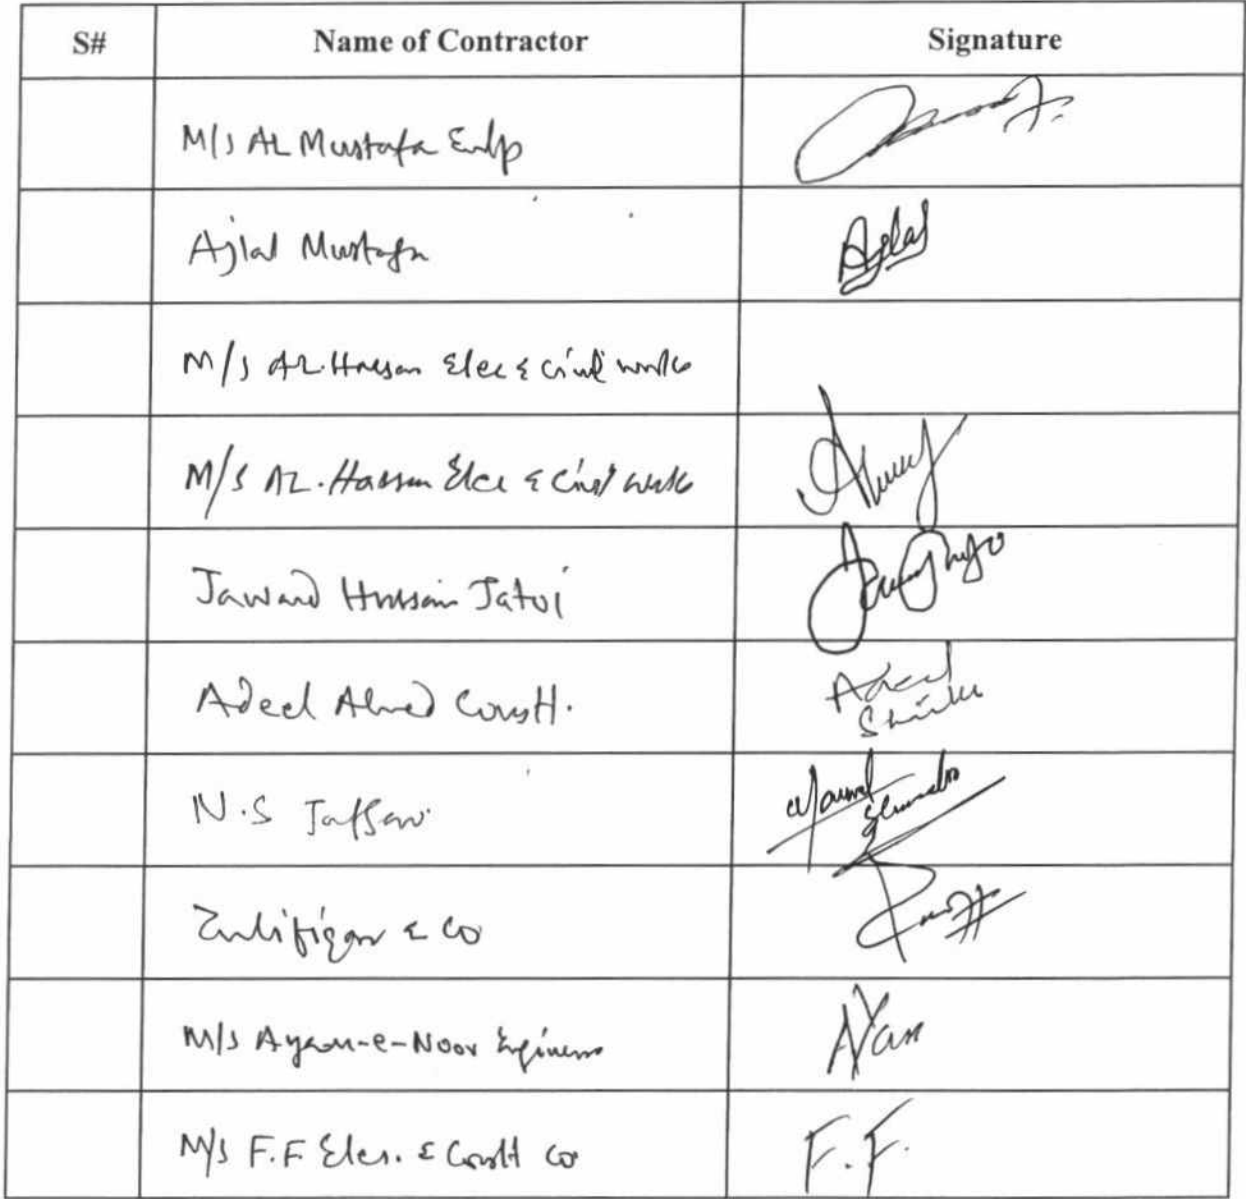 S# Name of Contractor Signature
M/S AL Mustafa Entp
Ajlal Mustafa Ajlal
M/S AL.Hassan Elec & Civil works
M/S AL.Hassan Elec & Civil works
Jawaid Hussain Jatoi
Adeel Ahmed Constt. Adeel
N.S Jaffari
Zulifiqar & Co
M/S Ayan-e-Noor Engineers Ayan
M/S F.F Elec. & Constt Co F.F.